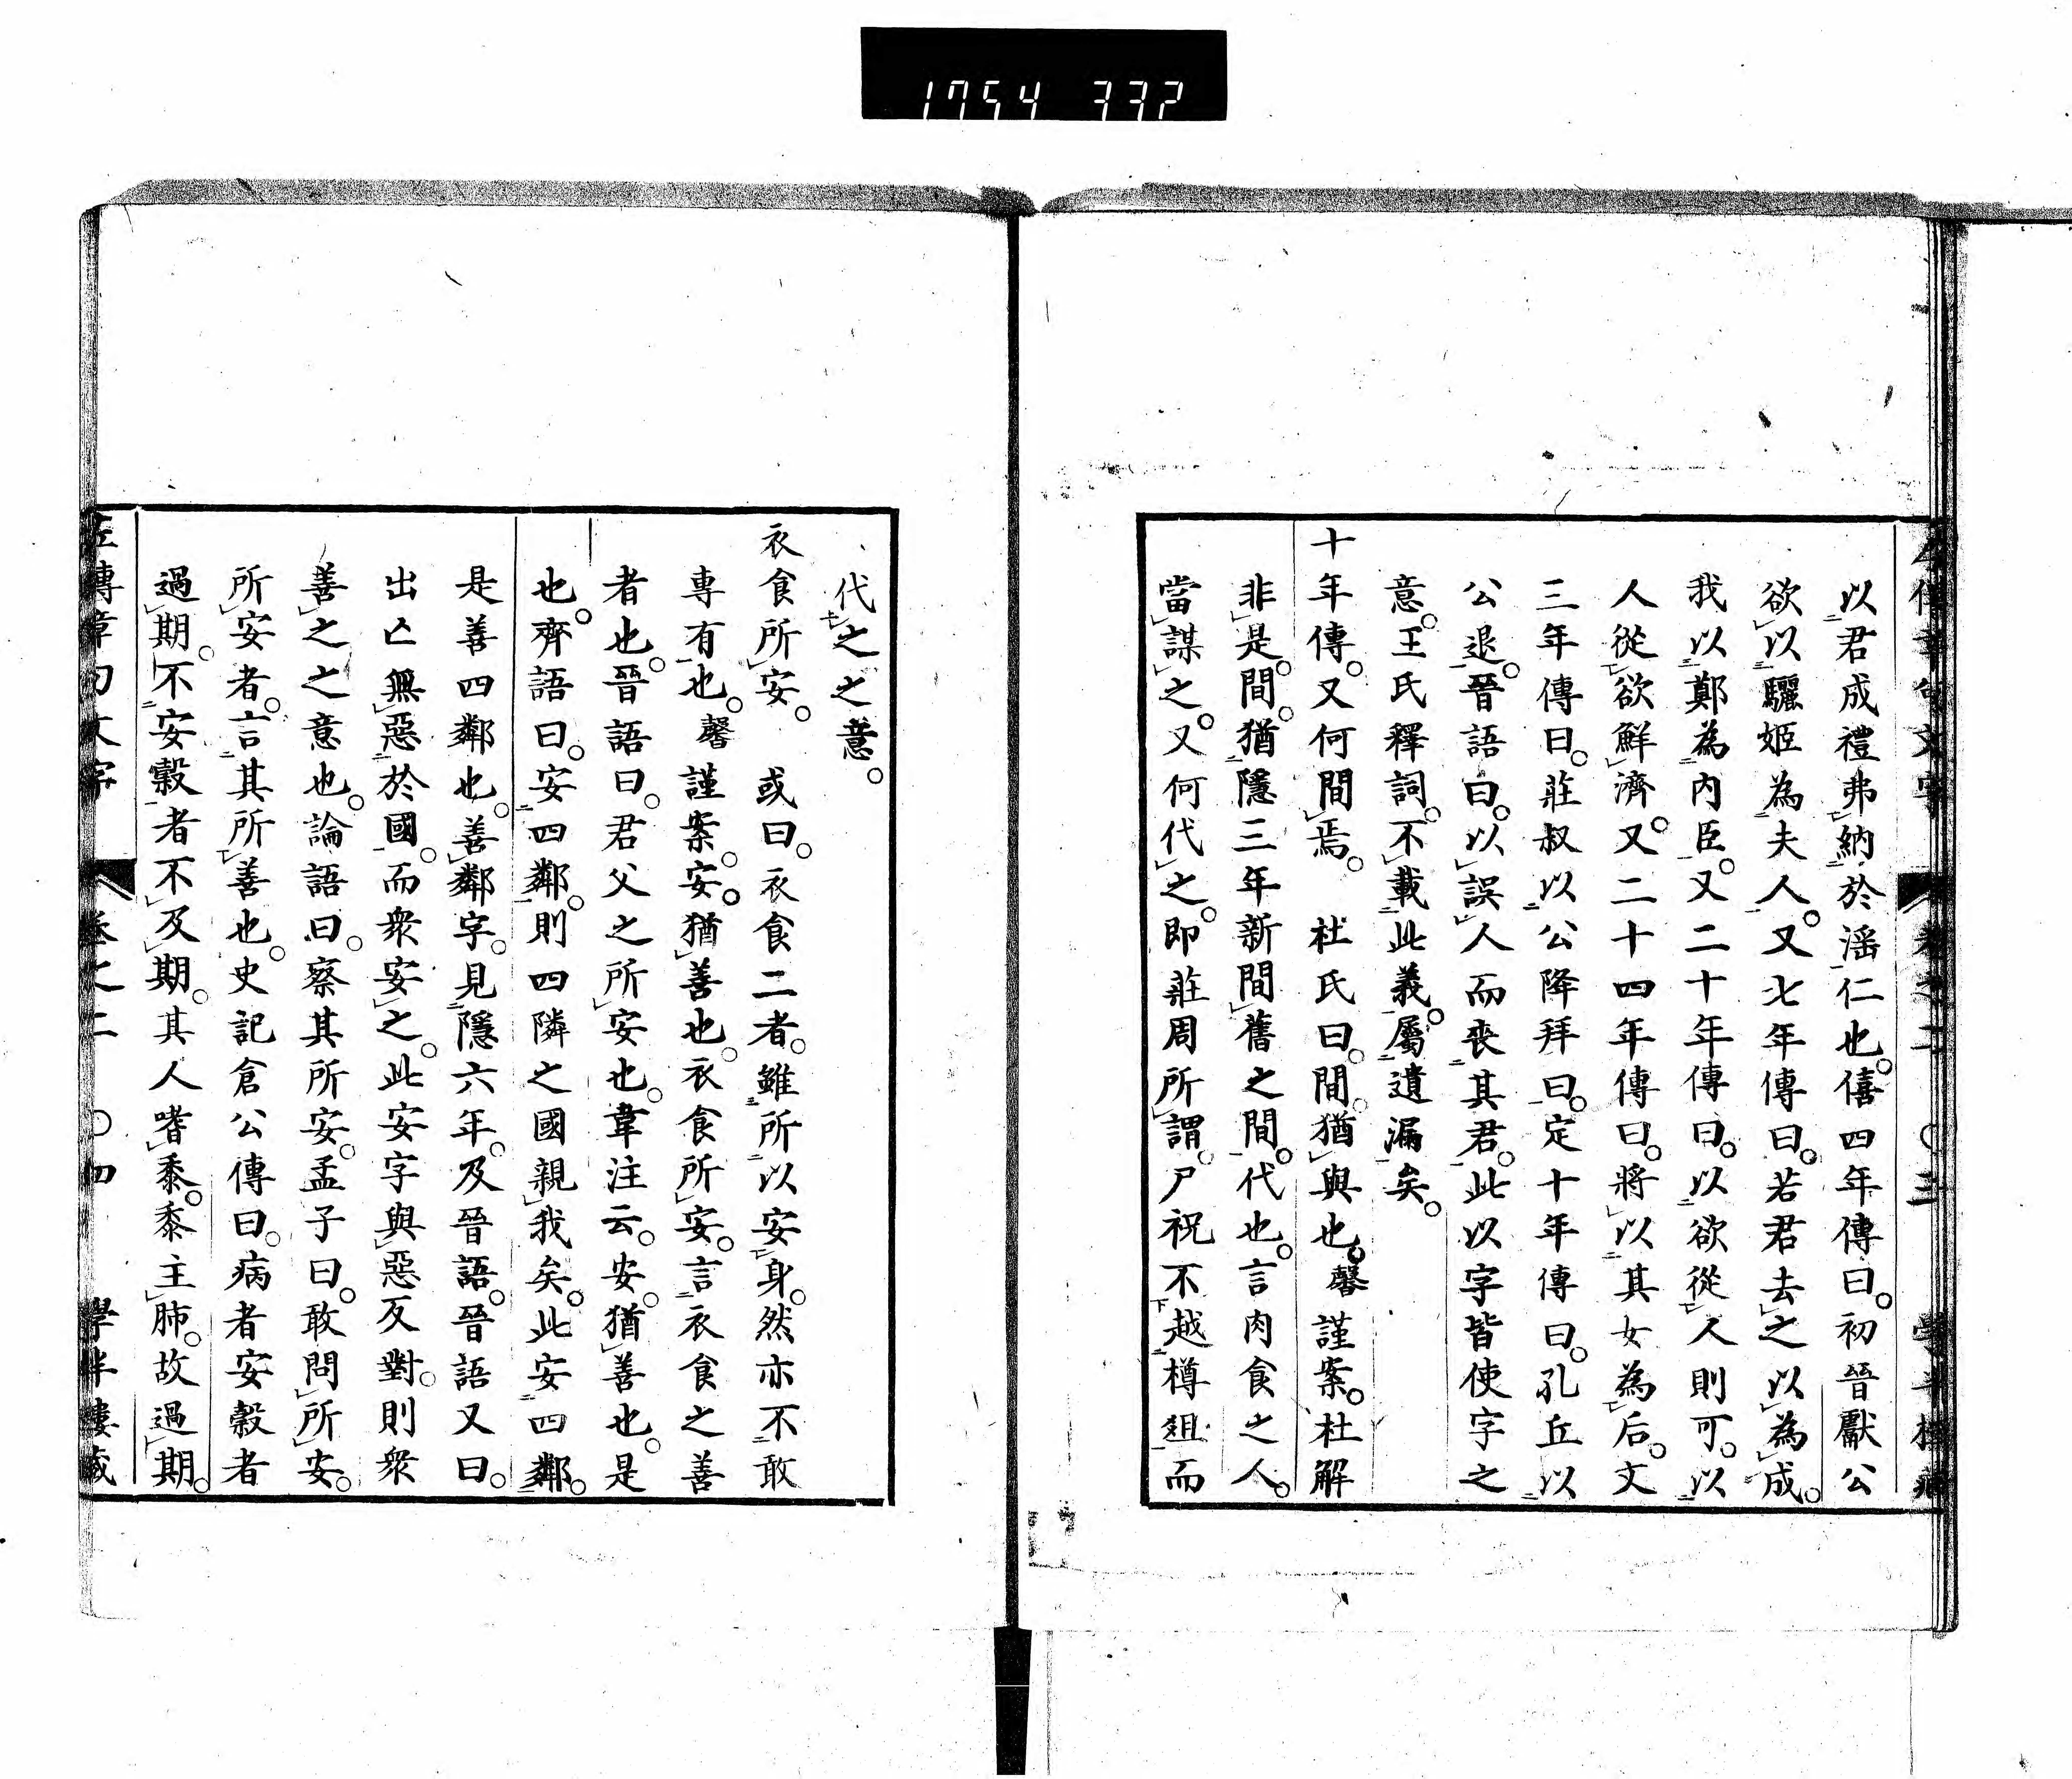 1754 332
以君成禮弗納於滛仁也。僖四年傳曰。初晉獻公
欲以驪姬為夫人。又七年傳曰。若君去之以為成。
我以鄭為内臣。又二十年傳曰。以欲從人則可。以
人從欲鮮濟。又二十四年傳曰。將以其女為后。文
三年傳曰。莊叔以公降拜曰。定十年傳曰。孔丘以
公退。晉語曰。以誤人而喪其君。此以字皆使字之
意。王氏釋詞。不載此義。屬遺漏矣。
十年傳。又何間焉。 杜氏曰。間猶與也。馨謹案。杜解
非是。間。猶隱三年新間舊之間。代也。言肉食之人。
當謀之。又何代之。即莊周所謂。尸祝不越樽俎而
代之之意。
衣食所安。 或曰。衣食二者。雖所以安身。然亦不敢
專有也。馨謹案。安。猶善也。衣食所安。言衣食之善
者也。晉語曰。君父之所安也。韋注云。安。猶善也。是
也。齊語曰。安四鄰。則四隣之國親我矣。此安四鄰。
是善四鄰也。善鄰字。見隱六年。及晉語。晉語又曰。
出亡無惡於國。而衆安之。此安字與惡反對。則衆
善之之意也。論語曰。察其所安。孟子曰。敢問所安。
所安者。言其所善也。史記倉公傳曰。病者安穀者
過期。不安穀者不及期。其人嗜黍。黍主肺。故過期。
左傳章句文字 卷之二 〇四 學半樓藏